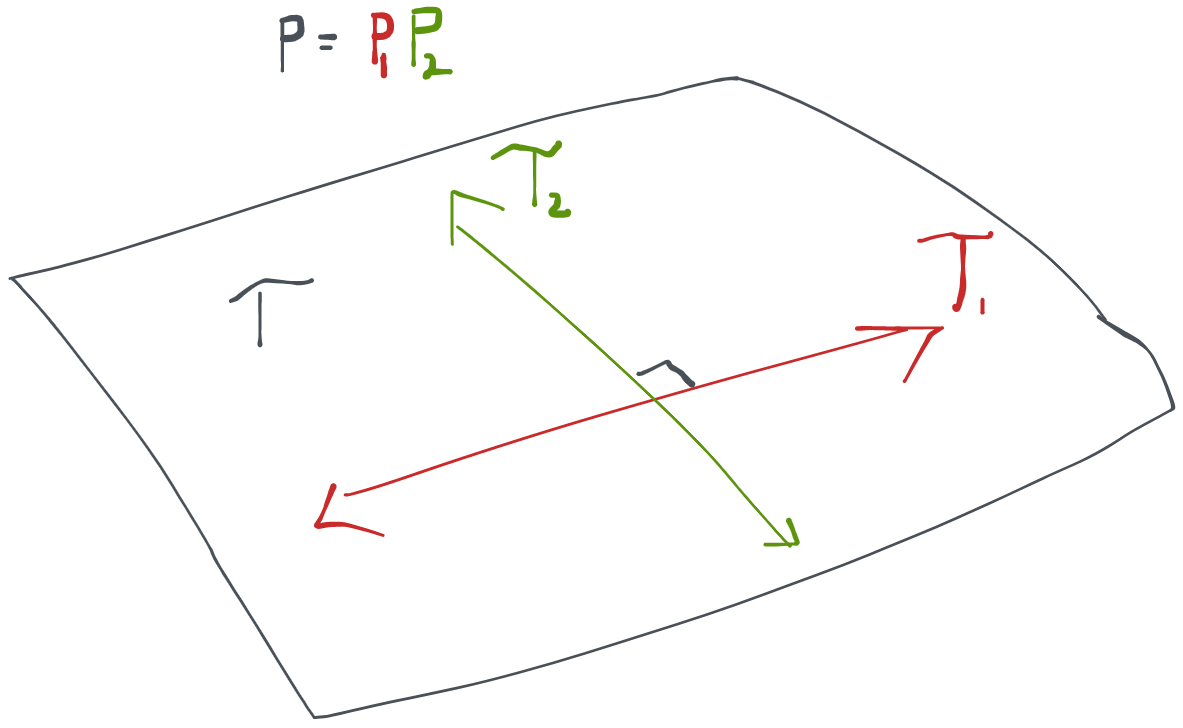 P = P₁P₂
T₂
T₁
T